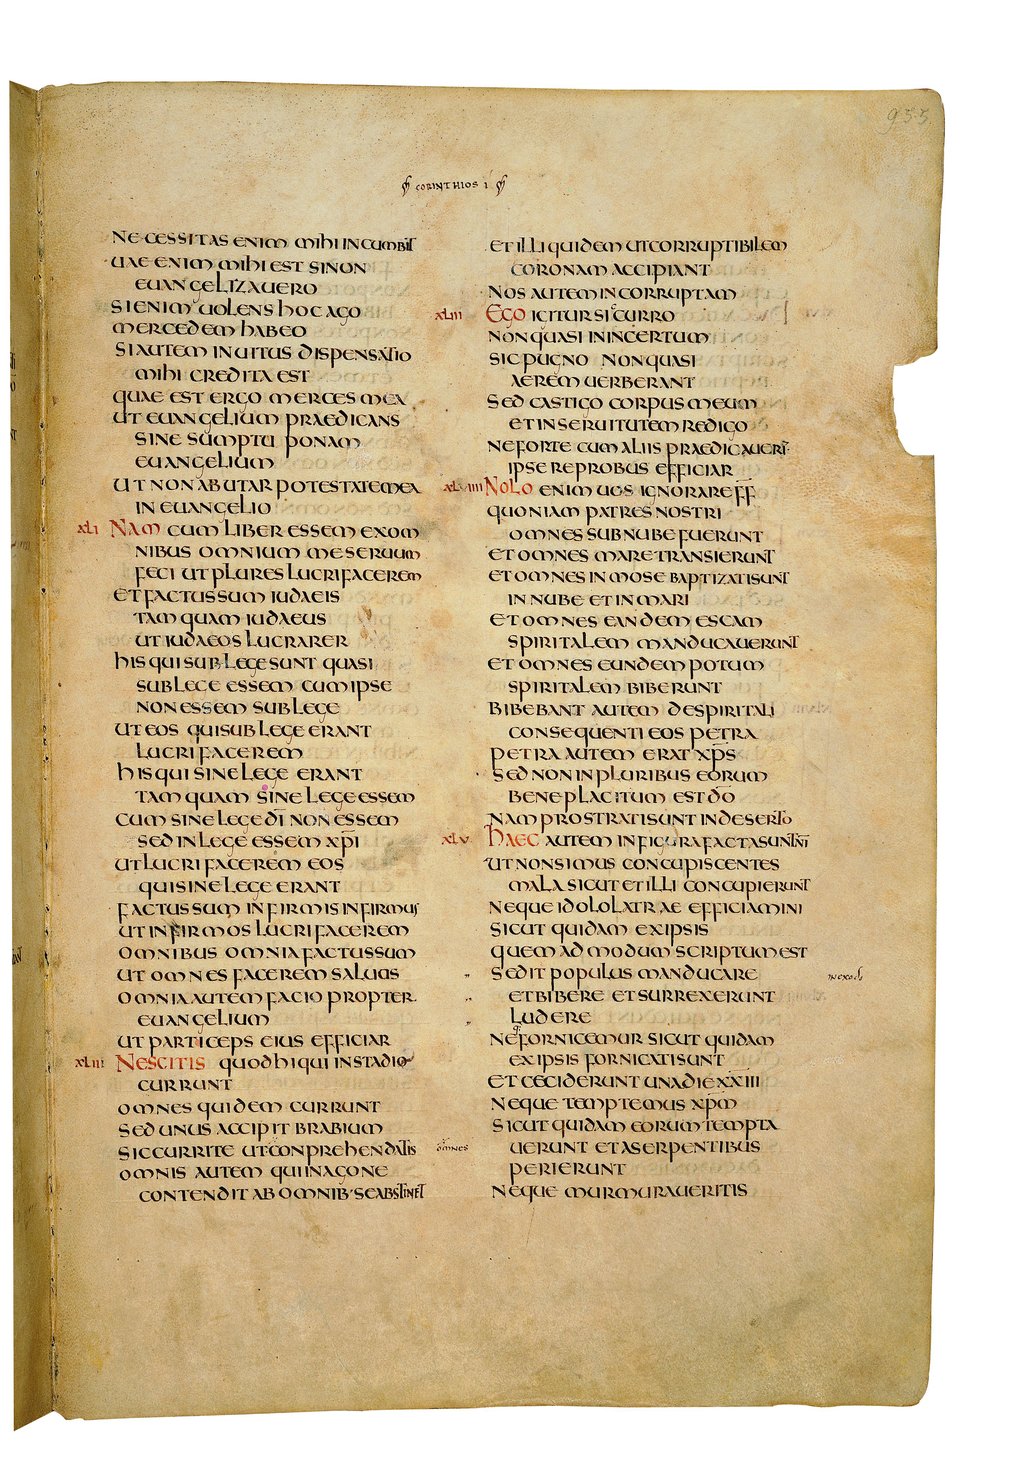 955
CORINTHIOS I
NECESSITAS ENIM MIHI INCUMBIT
UAE ENIM MIHI EST SI NON
EUANGELIZAUERO
SI ENIM UOLENS HOC AGO
MERCEDEM HABEO
SI AUTEM INUITUS DISPENSATIO
MIHI CREDITA EST
QUAE EST ERGO MERCES MEA
UT EUANGELIUM PRAEDICANS
SINE SUMPTU PONAM
EUANGELIUM
UT NON ABUTAR POTESTATE MEA
IN EUANGELIO
XLI NAM CUM LIBER ESSEM EX OM
NIBUS OMNIUM ME SERUUM
FECI UT PLURES LUCRIFACEREM
ET FACTUS SUM IUDAEIS
TAMQUAM IUDAEUS
UT IUDAEOS LUCRARER
HIS QUI SUB LEGE SUNT QUASI
SUB LEGE ESSEM CUM IPSE
NON ESSEM SUB LEGE
UT EOS QUI SUB LEGE ERANT
LUCRIFACEREM
HIS QUI SINE LEGE ERANT
TAMQUAM SINE LEGE ESSEM
CUM SINE LEGE DĪ NON ESSEM
SED IN LEGE ESSEM XP̄I
UT LUCRIFACEREM EOS
QUI SINE LEGE ERANT
FACTUS SUM INFIRMIS INFIRMUS
UT INFIRMOS LUCRIFACEREM
OMNIBUS OMNIA FACTUS SUM
UT OMNES FACEREM SALUOS
OMNIA AUTEM FACIO PROPTER
EUANGELIUM
UT PARTICEPS EIUS EFFICIAR
XLII NESCITIS QUOD HI QUI IN STADIO
CURRUNT
OMNES QUIDEM CURRUNT
SED UNUS ACCIPIT BRABIUM
SIC CURRITE UT CONPREHENDATIS
OMNES
OMNIS AUTEM QUI IN AGONE
CONTENDIT AB OMNIB· SE ABSTINET
ET ILLI QUIDEM UT CORRUPTIBILEM
CORONAM ACCIPIANT
NOS AUTEM INCORRUPTAM
XLIII EGO IGITUR SIC CURRO
NON QUASI IN INCERTUM
SIC PUGNO NON QUASI
AEREM UERBERANT
SED CASTIGO CORPUS MEUM
ET IN SERUITUTEM REDIGO
NE FORTE CUM ALIIS PRAEDICAUERI
IPSE REPROBUS EFFICIAR
XLIIII NOLO ENIM UOS IGNORARE FF
QUONIAM PATRES NOSTRI
OMNES SUB NUBE FUERUNT
ET OMNES MARE TRANSIERUNT
ET OMNES IN MOSE BAPTIZATI SUNT
IN NUBE ET IN MARI
ET OMNES EANDEM ESCAM
SPIRITALEM MANDUCAUERUNT
ET OMNES EUNDEM POTUM
SPIRITALEM BIBERUNT
BIBEBANT AUTEM DE SPIRITALI
CONSEQUENTI EOS PETRA
PETRA AUTEM ERAT XP̄S
SED NON IN PLURIBUS EORUM
BENEPLACITUM EST DŌ
NAM PROSTRATI SUNT IN DESERTO
XLV HAEC AUTEM IN FIGURA FACTA SUNT NĪ
UT NON SIMUS CONCUPISCENTES
MALA SICUT ET ILLI CONCUPIERUNT
NEQUE IDOLOLATRAE EFFICIAMINI
SICUT QUIDAM EX IPSIS
QUEMADMODUM SCRIPTUM EST
SEDIT POPULUS MANDUCARE
IN EXOD
ET BIBERE ET SURREXERUNT
LUDERE
NE FORNICEMUR SICUT QUIDAM
EX IPSIS FORNICATI SUNT
ET CECIDERUNT UNA DIE XXIII
NEQUE TEMPTEMUS XP̄M
SICUT QUIDAM EORUM TEMPTA
UERUNT ET A SERPENTIBUS
PERIERUNT
NEQUE MURMURAUERITIS